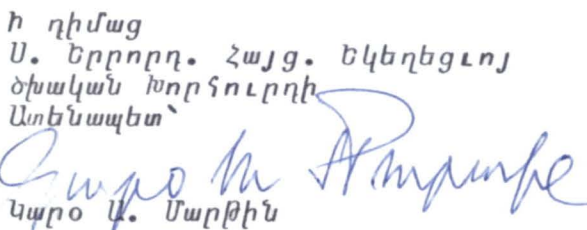 Ի դիմաց
Ս. Երրորդ. Հայց. Եկեղեցւոյ
Ծխական Խորհուրդի
Ատենապետ՝
Կարօ Ա. Մարթին